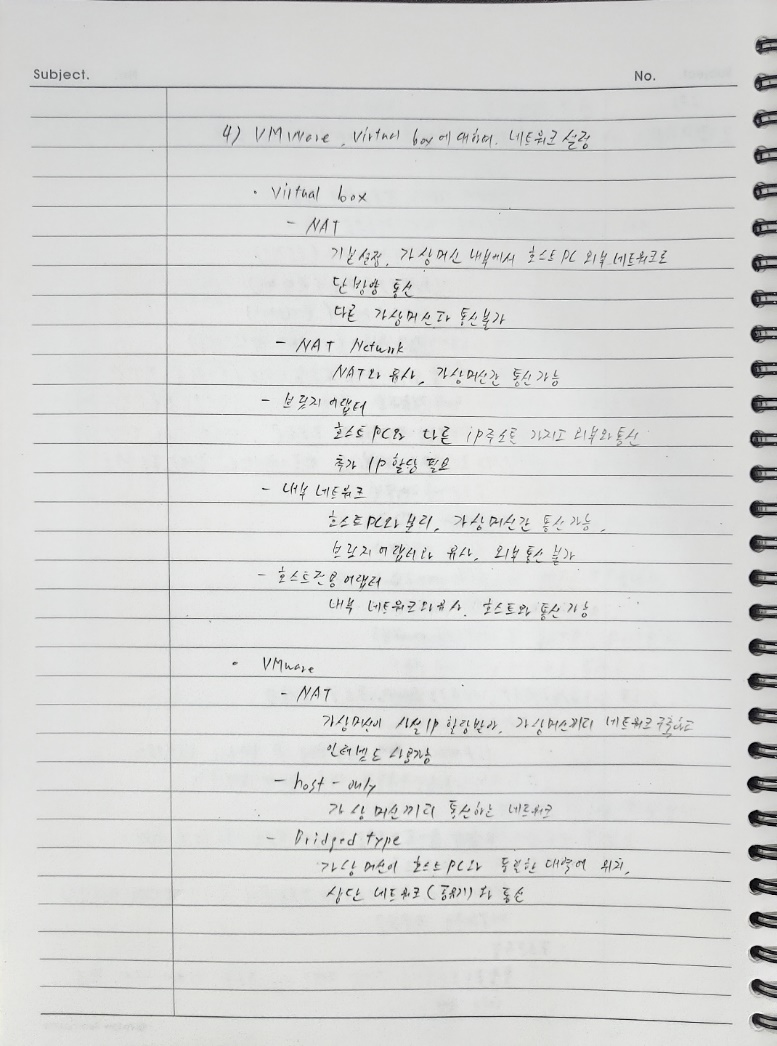 Subject.
No.
4) VMware, Virtual box에 대하여. 네트워크 설정
• Virtual box
- NAT
기본설정, 가상머신 내부에서 호스트 PC 외부 네트워크로
단방향 통신
다른 가상머신과 통신불가
- NAT Network
NAT와 유사, 가상머신간 통신 가능
- 브릿지 어댑터
호스트 PC와 다른 ip주소를 가지고 외부와 통신
추가 IP 할당 필요
- 내부 네트워크
호스트PC와 분리, 가상머신간 통신 가능,
브릿지 어댑터와 유사, 외부통신 불가
- 호스트전용 어댑터
내부 네트워크와 유사. 호스트와 통신 가능
• VMware
- NAT
가상머신이 사설 IP 할당받아, 가상머신끼리 네트워크 구축하고
인터넷도 사용가능
- host - only
가상머신끼리 통신하는 네트워크
- Bridged type
가상머신이 호스트PC와 동일한 대역에 위치,
상단 네트워크(공유기)와 통신